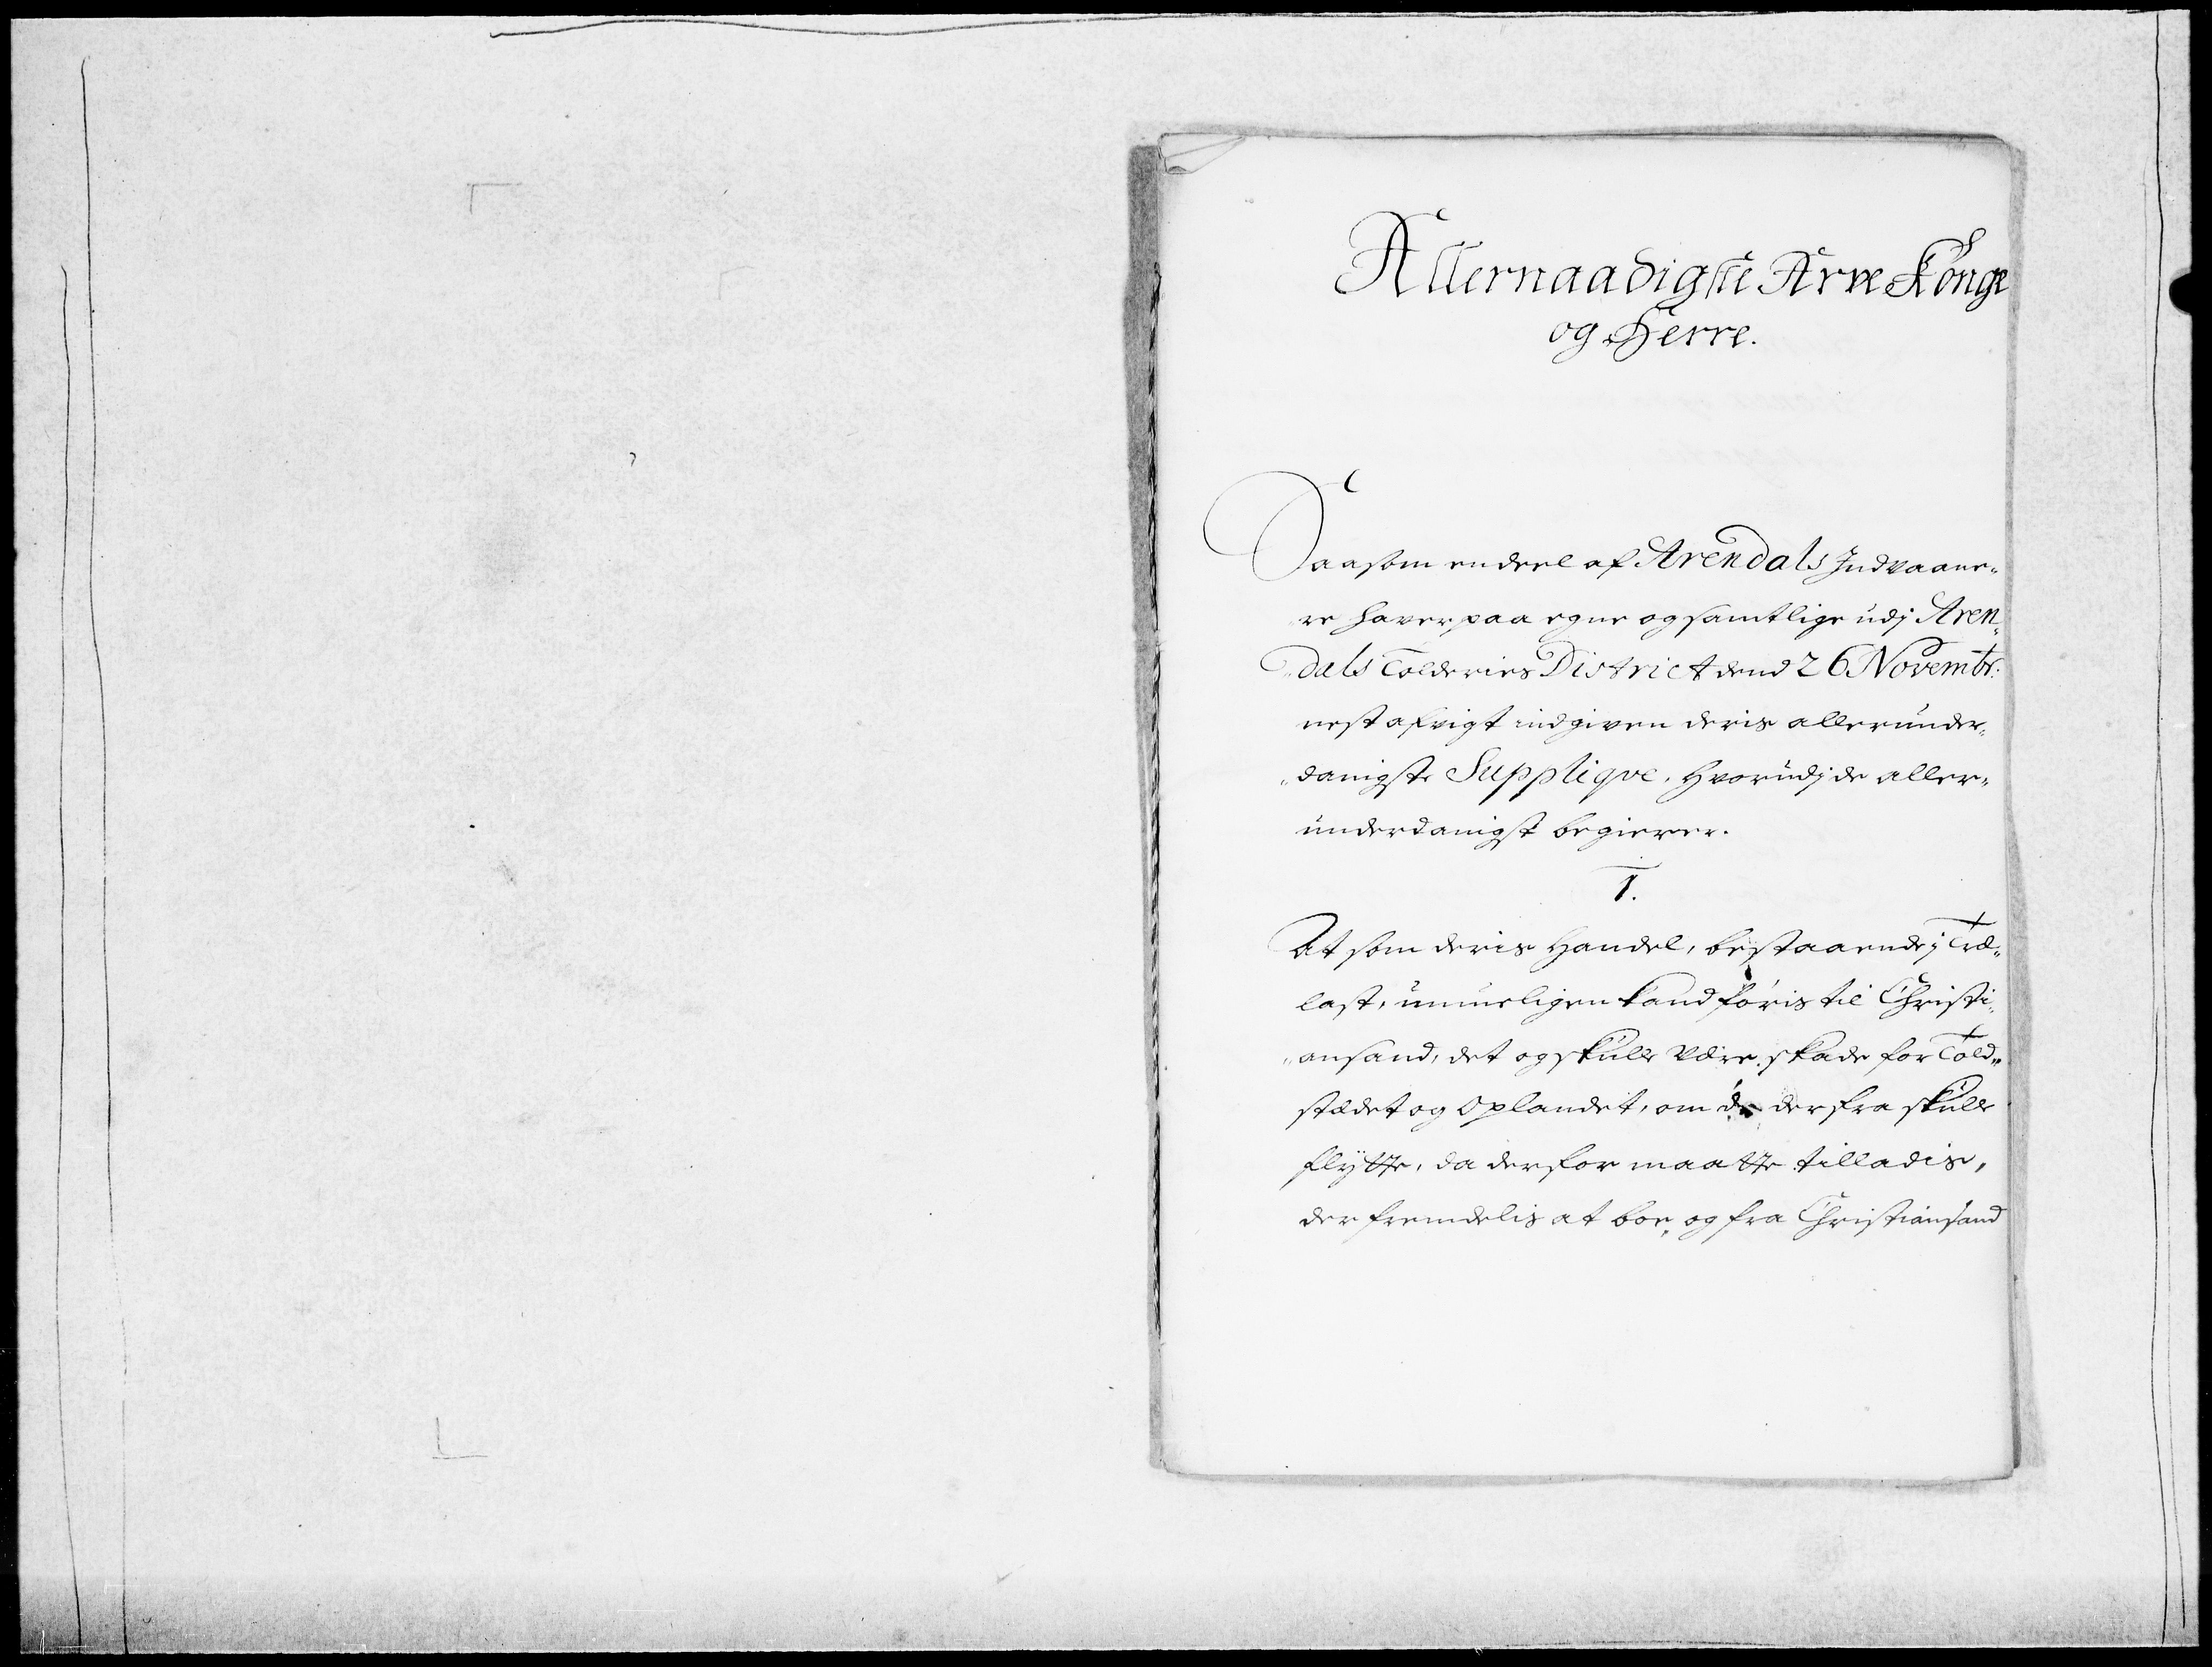 Allernaadigste Arve Konge
og Herre.
Saasom endeel af Arendals Indvaane-
re haver, paa egne og samtlige udj Aren-
dals Tolderies District dend 26 Novembr:
nest afvigt indgiven deris allerunder-
danigste Supplique, hvorudj de aller-
underdanigst begierer.
1.
At som deris Handel, bestaaende j Træ-
last, umueligen kand føris til Christi-
ansand, det og skulle være skade for Told-
stædet og Oplandet, om de derfra skulle
flytte, da derfor maatte tilladis,
der fremdelis at boe, og fra Christiansand